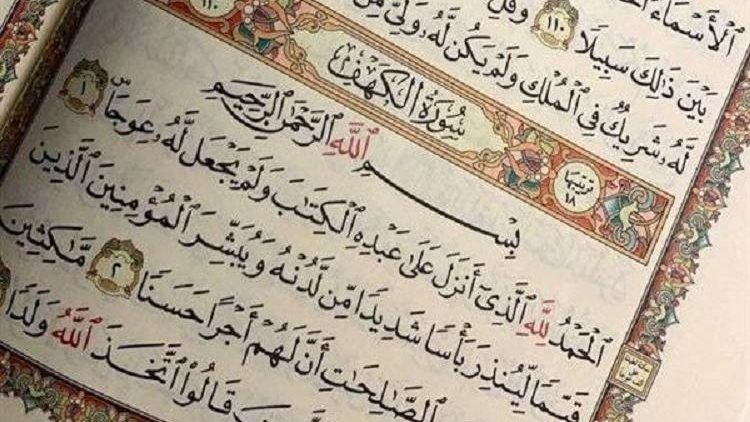 ٱلْأَسْمَآءُ
بَيْنَ ذَٰلِكَ سَبِيلًا ١١٠ وَقُلِ
لَّهُۥ شَرِيكٌ فِى ٱلْمُلْكِ وَلَمْ يَكُن لَّهُۥ وَلِىٌّ مِّنَ
١١٠
سُورَةُ الكَهْفِ
ترتيبها ١٨
بِسْمِ ٱللَّهِ ٱلرَّحْمَٰنِ ٱلرَّحِيمِ
ٱلْحَمْدُ لِلَّهِ ٱلَّذِىٓ أَنزَلَ عَلَىٰ عَبْدِهِ ٱلْكِتَٰبَ وَلَمْ يَجْعَل لَّهُۥ عِوَجَا ۜ ١
قَيِّمًا لِّيُنذِرَ بَأْسًا شَدِيدًا مِّن لَّدُنْهُ وَيُبَشِّرَ ٱلْمُؤْمِنِينَ ٱلَّذِينَ
ٱلصَّٰلِحَٰتِ أَنَّ لَهُمْ أَجْرًا حَسَنًا ٢ مَّٰكِثِينَ
قَالُوا۟ ٱتَّخَذَ ٱللَّهُ وَلَدًا